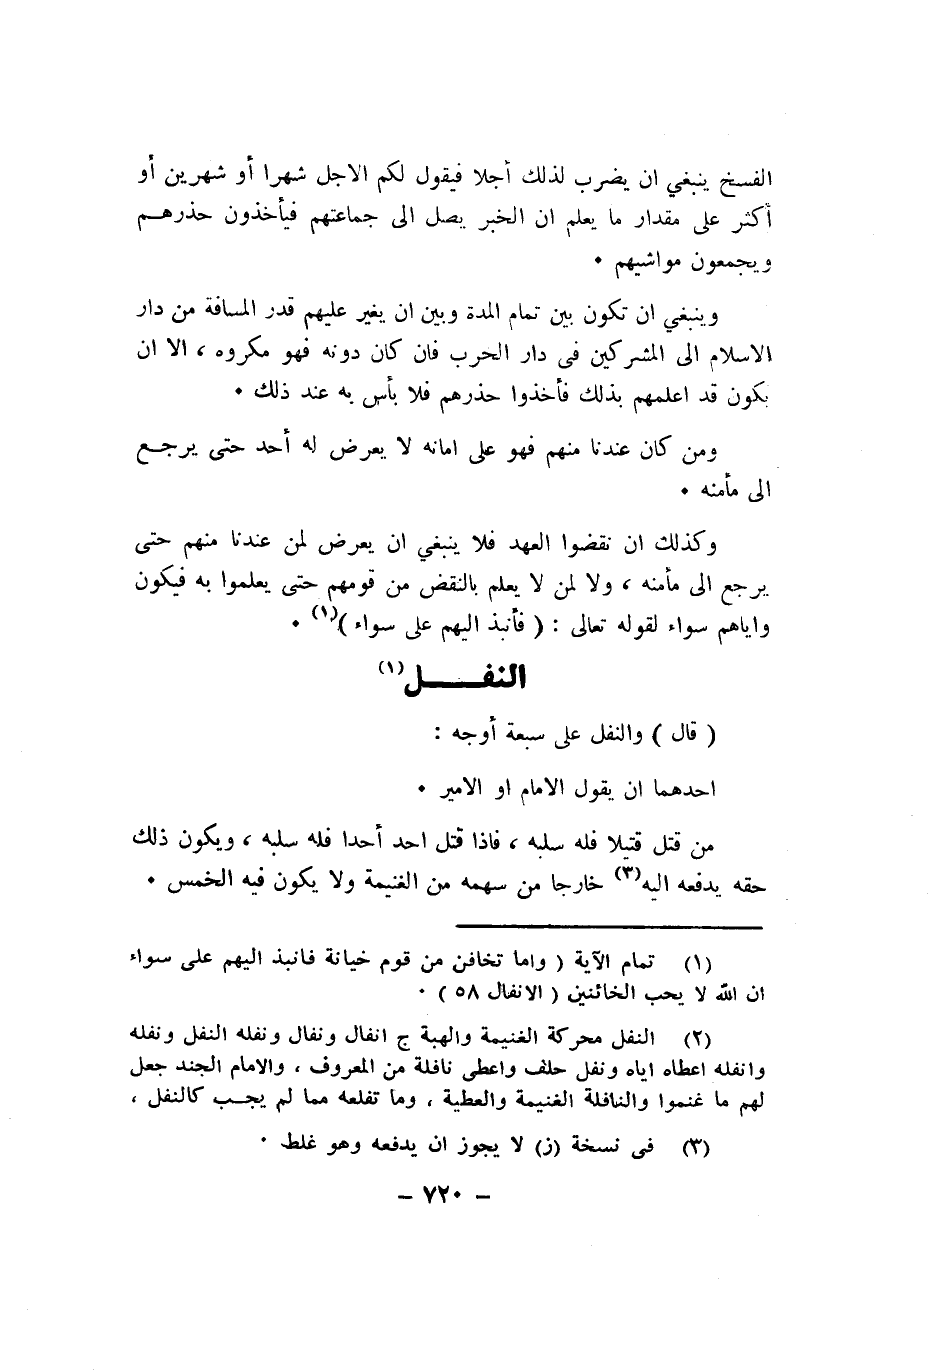 الفسخ ينبغي ان يضرب لذلك أجلا فيقول لكم الاجل شهرا أو شهرين أو
أكثر على مقدار ما يعلم ان الخبر يصل الى جماعتهم فيأخذون حذرهم
ويجمعون مواشيهم ٠
وينبغي ان تكون بين تمام المدة وبين ان يغير عليهم قدر المسافة من دار
الاسلام الى المشركين فى دار الحرب فان كان دونه فهو مكروه ، الا ان
يكون قد اعلمهم بذلك فأخذوا حذرهم فلا بأس به عند ذلك ٠
ومن كان عندنا منهم فهو على امانه لا يعرض له أحد حتى يرجع
الى مأمنه ٠
وكذلك ان نقضوا العهد فلا ينبغي ان يعرض لمن عندنا منهم حتى
يرجع الى مأمنه ، ولا لمن لا يعلم بالنقض من قومهم حتى يعلموا به فيكون
واياهم سواء لقوله تعالى : ( فأنبذ اليهم على سواء )(١) ٠
النفل(١)
( قال ) والنفل على سبعة أوجه :
احدهما ان يقول الامام او الامير ٠
من قتل قتيلا فله سلبه ، فاذا قتل احد أحدا فله سلبه ، ويكون ذلك
حقه يدفعه اليه(٣) خارجا من سهمه من الغنيمة ولا يكون فيه الخمس ٠
(١) تمام الآية ( واما تخافن من قوم خيانة فانبذ اليهم على سواء
ان الله لا يحب الخائنين ( الانفال ٥٨ ) ٠
(٢) النفل محركة الغنيمة والهبة ج انفال ونفال ونفله النفل ونفله
وانفله اعطاه اياه ونفل حلف واعطى نافلة من المعروف ، والامام الجند جعل
لهم ما غنموا والنافلة الغنيمة والعطية ، وما تفلعه مما لم يجب كالنفل ،
(٣) فى نسخة (ز) لا يجوز ان يدفعه وهو غلط ٠
– ٧٢٠ –